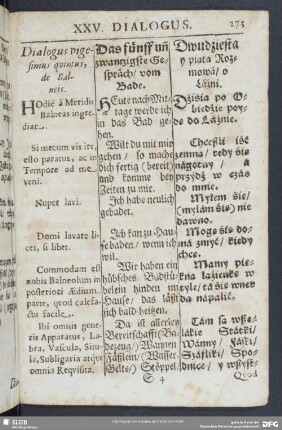 XXV. DIALOGUS. 273
Dialogus vige-
simus quintus,
de Bal-
neis.
HOdiè à Meridie
Balneas ingre-
diar.
Si mecum vis ire,
esto paratus, ac in
Tempore ad me
veni.
Nuper lavi.
Domi lavare li-
cet, si libet.
Commodam est
nobis Balneolum in
posteriori Ædium
parte, quod calefa-
ctu facile.
Ibi omnis gene-
ris Apparatus, La-
bra, Vascula, Situ-
la, Subligaria atque
omnia Reqvisita.
Das fünff uñ
zwantzigste Ge-
spräch/ vom
Bade.
HEute nach Mit-
tage werde ich
in das Bad ge-
hen.
Wilt du mit mir
gehen/ so mache
dich fertig (bereit)
und komme bey
Zeiten zu mir.
Ich habe neulich
gebadet.
Ich kan zu Hau-
se baden/ wenn ich
wil.
Wir haben ein
hübsches Badstü-
belein hinden im
Hause/ das läst
sich bald heitzen.
Da ist allerley
Bereitschafft (Ba-
dezeug/) Wannen
Fäßlein/ (Wasser-
Gelte/) Stöppel/
S 4
Dwudziesta
y piata Roz-
mowá/ o
Láźni.
DZisia po O-
biedzie poy-
de do Láźnie.
Chceßli iść
zemna/ tedy się
nágotuy/ á
przydź w czás
do mnie.
Myłem się/
(myłám się) nie
dawno.
Moge się do-
má zmyć/ kiedy
chce.
Mamy pie-
kna łázienke w
tyle/ tá się wnet
da nápalić.
Tám sa wße-
lákie Státki/
Wánny/ Fáski/
Száfliki/ Spo-
dnice/ y wßyst-
Quod